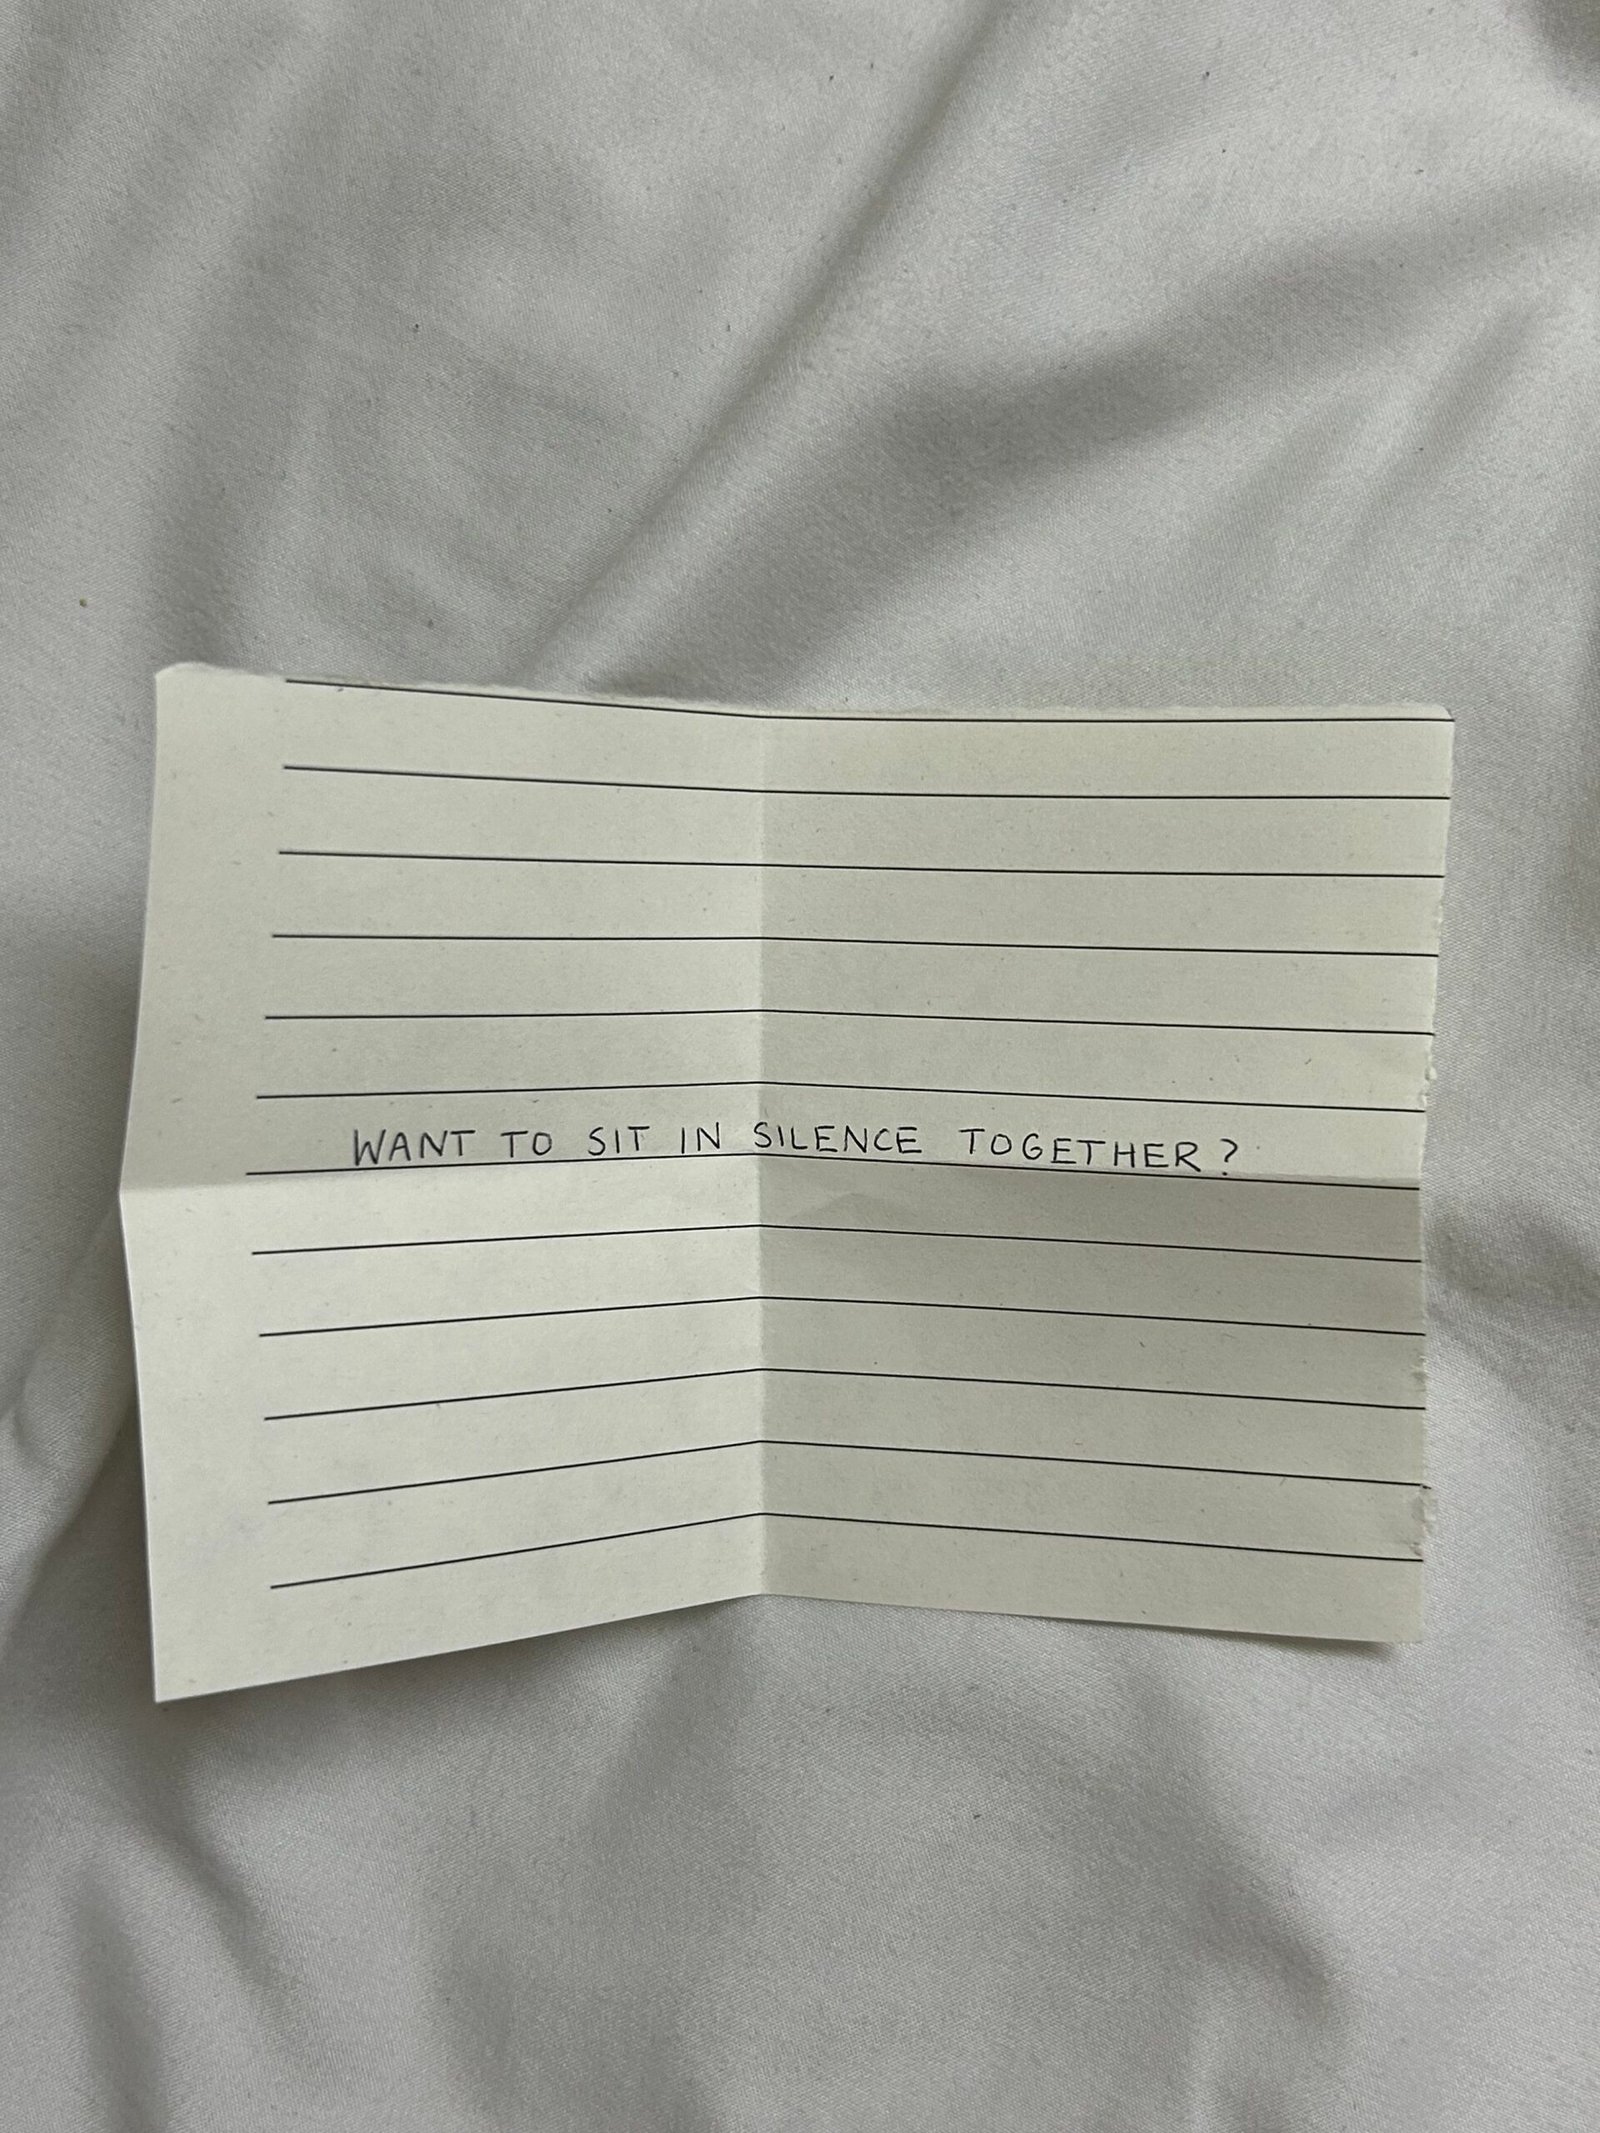 WANT TO SIT IN SILENCE TOGETHER?